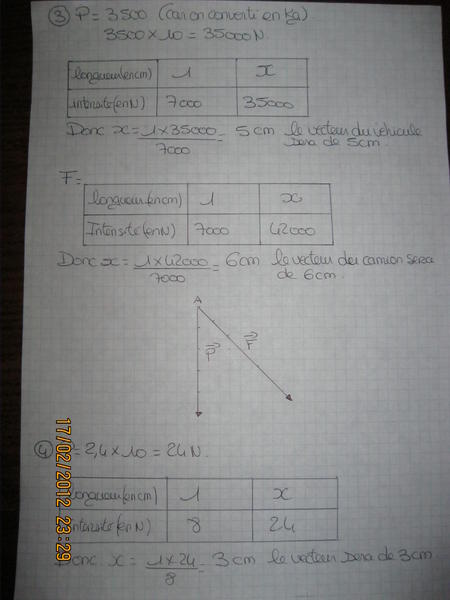 ③ P = 3500 (car on convertit en kg)
3500 x 10 = 35000 N.
longueur (en cm) 1 x
intensité (en N) 7000 35000
Donc x = 1 x 35000 / 7000 = 5 cm le vecteur du véhicule
sera de 5cm.
F =
longueur (en cm) 1 x
Intensité (en N) 7000 42000
Donc x = 1 x 42000 / 7000 = 6cm le vecteur du camion sera
de 6cm.
A
P F
④ P = 2,4 x 10 = 24 N.
longueur (en cm) 1 x
intensité (en N) 8 24
Donc x = 1 x 24 / 8 = 3 cm le vecteur sera de 3cm.
17/02/2012 23:29